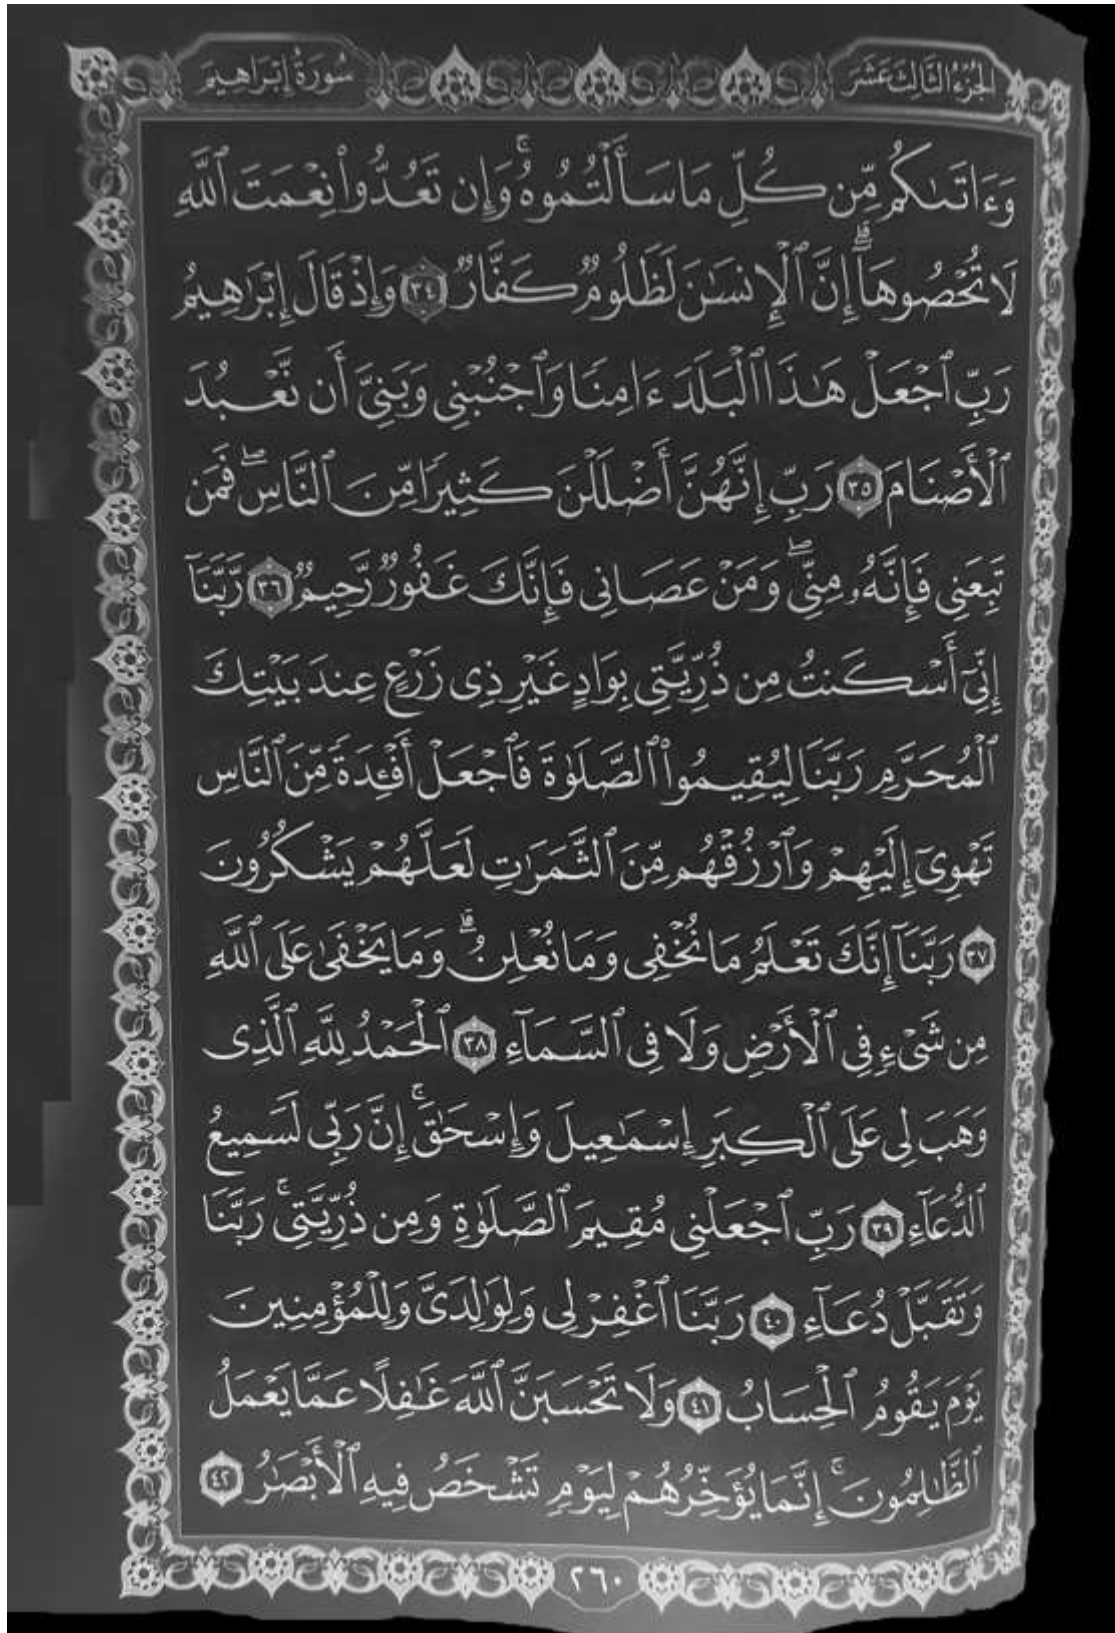 الجُزْءُ الثَّالِثَ عَشَرَ
سُورَةُ إِبْرَاهِيمَ
وَءَاتَىٰكُم مِّن كُلِّ مَا سَأَلْتُمُوهُۚ وَإِن تَعُدُّوا۟ نِعْمَتَ ٱللَّهِ
لَا تُحْصُوهَآۗ إِنَّ ٱلْإِنسَٰنَ لَظَلُومٌ كَفَّارٌ ٣٤ وَإِذْ قَالَ إِبْرَٰهِيمُ
رَبِّ ٱجْعَلْ هَٰذَا ٱلْبَلَدَ ءَامِنًا وَٱجْنُبْنِى وَبَنِىَّ أَن نَّعْبُدَ
ٱلْأَصْنَامَ ٣٥ رَبِّ إِنَّهُنَّ أَضْلَلْنَ كَثِيرًا مِّنَ ٱلنَّاسِۖ فَمَن
تَبِعَنِى فَإِنَّهُۥ مِنِّىۖ وَمَنْ عَصَانِى فَإِنَّكَ غَفُورٌ رَّحِيمٌ ٣٦ رَّبَّنَآ
إِنِّىٓ أَسْكَنتُ مِن ذُرِّيَّتِى بِوَادٍ غَيْرِ ذِى زَرْعٍ عِندَ بَيْتِكَ
ٱلْمُحَرَّمِ رَبَّنَا لِيُقِيمُوا۟ ٱلصَّلَوٰةَ فَٱجْعَلْ أَفْـِٔدَةً مِّنَ ٱلنَّاسِ
تَهْوِىٓ إِلَيْهِمْ وَٱرْزُقْهُم مِّنَ ٱلثَّمَرَٰتِ لَعَلَّهُمْ يَشْكُرُونَ
٣٧ رَبَّنَآ إِنَّكَ تَعْلَمُ مَا نُخْفِى وَمَا نُعْلِنُۗ وَمَا يَخْفَىٰ عَلَى ٱللَّهِ
مِن شَىْءٍ فِى ٱلْأَرْضِ وَلَا فِى ٱلسَّمَآءِ ٣٨ ٱلْحَمْدُ لِلَّهِ ٱلَّذِى
وَهَبَ لِى عَلَى ٱلْكِبَرِ إِسْمَٰعِيلَ وَإِسْحَٰقَۚ إِنَّ رَبِّى لَسَمِيعُ
ٱلدُّعَآءِ ٣٩ رَبِّ ٱجْعَلْنِى مُقِيمَ ٱلصَّلَوٰةِ وَمِن ذُرِّيَّتِىۚ رَبَّنَا
وَتَقَبَّلْ دُعَآءِ ٤٠ رَبَّنَا ٱغْفِرْ لِى وَلِوَٰلِدَىَّ وَلِلْمُؤْمِنِينَ
يَوْمَ يَقُومُ ٱلْحِسَابُ ٤١ وَلَا تَحْسَبَنَّ ٱللَّهَ غَٰفِلًا عَمَّا يَعْمَلُ
ٱلظَّٰلِمُونَۚ إِنَّمَا يُؤَخِّرُهُمْ لِيَوْمٍ تَشْخَصُ فِيهِ ٱلْأَبْصَٰرُ ٤٢
٢٦٠